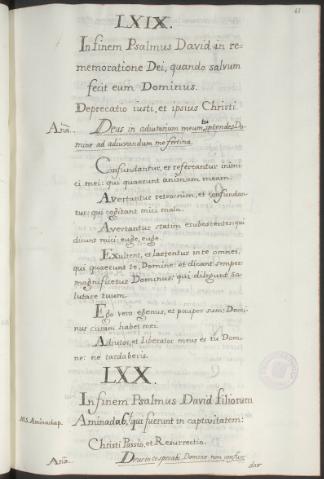 41
LXIX.
In finem Psalmus David in re-
memoratione Dei, quando salvum
fecit eum Dominus.
Deprecatio iusti, et ipsius Christi
Deus in adiutorium meum
mine ad adiuvandum me festina.
Confundantur, et revereantur inimi-
ci mei: qui quaerunt animam meam.
Avertantur retrorsum, et confundan-
tur: qui cogitant mihi mala.
Avertantur statim erubescentes: qui
dicunt mihi: euge, euge.
Exultent, et laetentur in te omnes,
qui quaerunt te, Domine: et dicant semper
magnificetur Dominus: qui diligunt sa-
lutare tuum.
Ego vero egenus, et pauper sum: Domi-
nus curam habet mei.
Adiutor, et liberator meus es tu Domi-
ne: ne tardaberis.
LXX.
In finem Psalmus David filiorum
MS. Aminadap. Aminadab, qui fuerunt in captivitatem:
Christi Passio, et Resurrectio.
Deus in te speravi Domine non confun-
dar